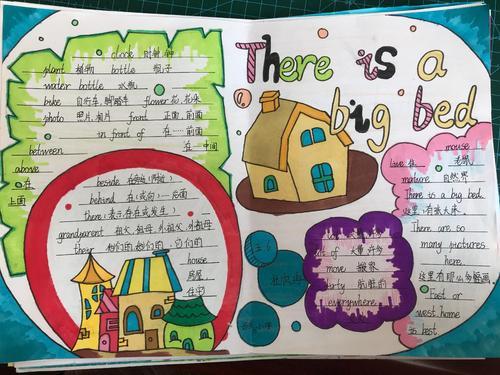 There is a
big bed
clock 时钟 钟
plant 植物 bottle 瓶子
water bottle 水瓶
bike 自行车,脚踏车 flower 花,花朵
photo 照片,相片 front 正面,前面
in front of 在……前面
between 在…中间
above
在
上面
beside 在旁边(附近)
behind 在(或向)…后面
there (表示存在或发生)
grandparent 祖父,祖母,外祖父,外祖母
their 他们的,她们的,它们的
house
房屋
住宅
of 大量,许多
move 搬家
dirty 肮脏的
everywhere
mouse
live in 住 老鼠
nature 自然界
There is a big bed.
这里有张大床。
There are so
many pictures
here.
这里有那么多幅画。
East or
west, home
is best.